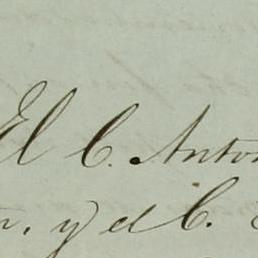 El C. Anton
y el C.